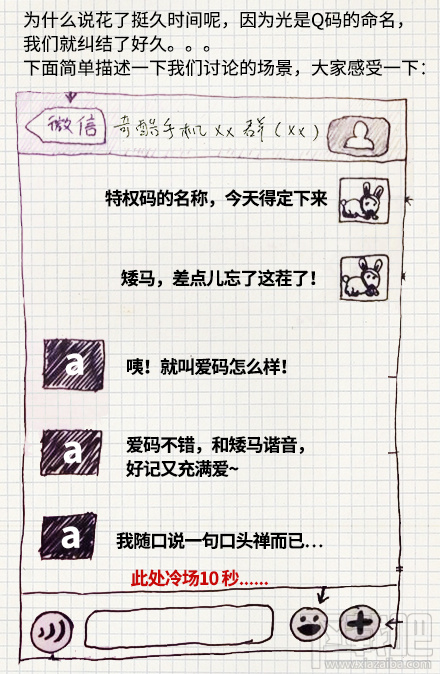 为什么说花了挺久时间呢，因为光是Q码的命名，
我们就纠结了好久。。。
下面简单描述一下我们讨论的场景，大家感受一下：
微信 奇酷手机xx群(xx)
特权码的名称，今天得定下来
矮马，差点儿忘了这茬了！
a
咦！就叫爱码怎么样！
a
爱码不错，和矮马谐音，
好记又充满爱~
a
我随口说一句口头禅而已…
此处冷场10秒……
下载吧
www.xiazaiba.com